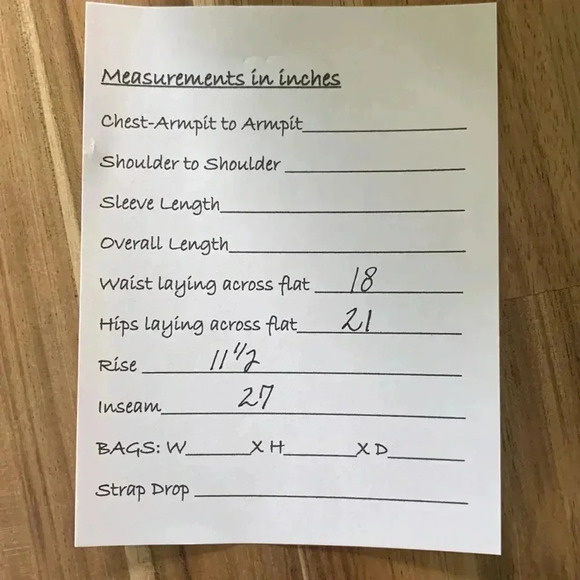 Measurements in inches
Chest-Armpit to Armpit
Shoulder to Shoulder
Sleeve Length
Overall Length
Waist laying across flat 18
Hips laying across flat 21
Rise 11 1/2
Inseam 27
BAGS: W X H X D
Strap Drop